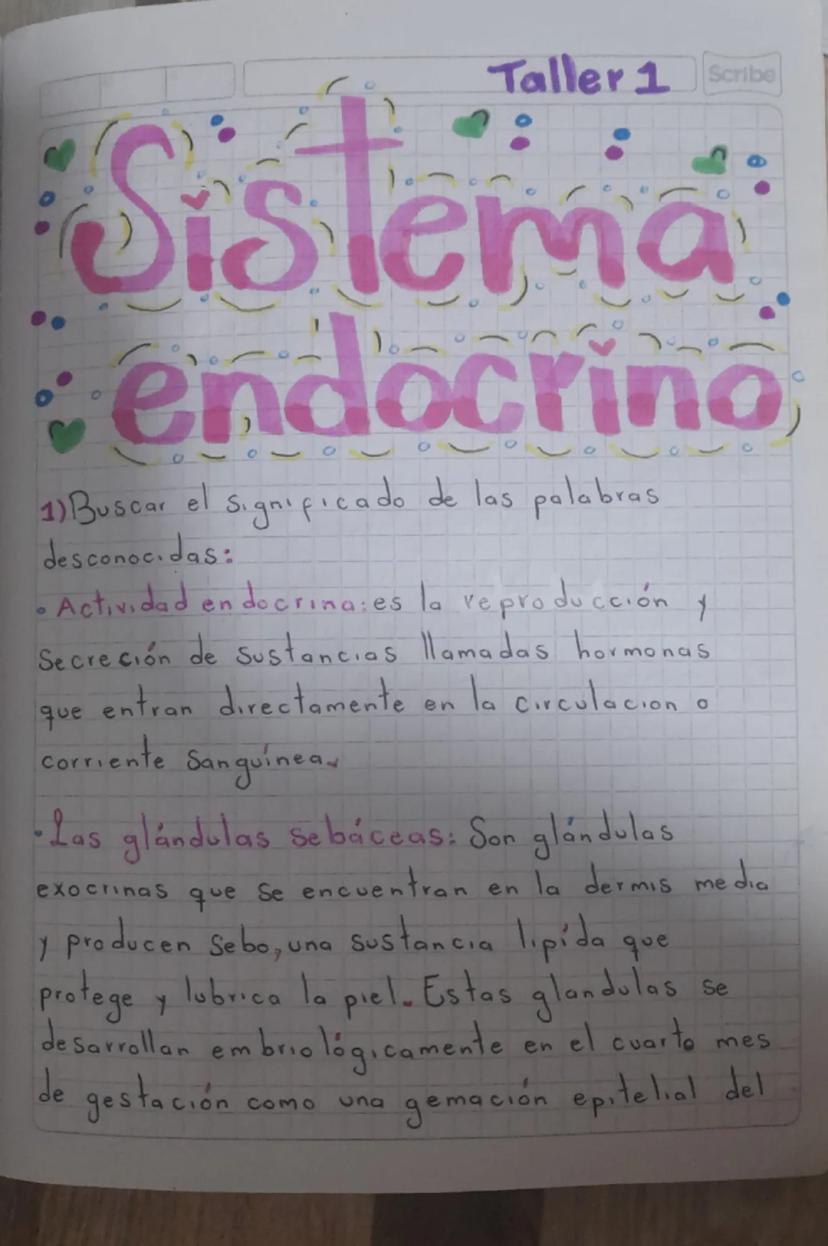 Taller 1
Scribe
Sistema
endocrino
1) Buscar el significado de las palabras
desconocidas:
• Actividad endocrina: es la reproducción y
Secreción de sustancias llamadas hormonas
que entran directamente en la circulacion o
corriente Sanguínea.
• Las glándulas sebáceas: Son glándulas
exocrinas que se encuentran en la dermis media
y producen sebo, una sustancia lipída que
protege y lubrica la piel. Estas glandulas se
desarrollan embriológicamente en el cuarto mes
de gestación como una gemación epitelial del